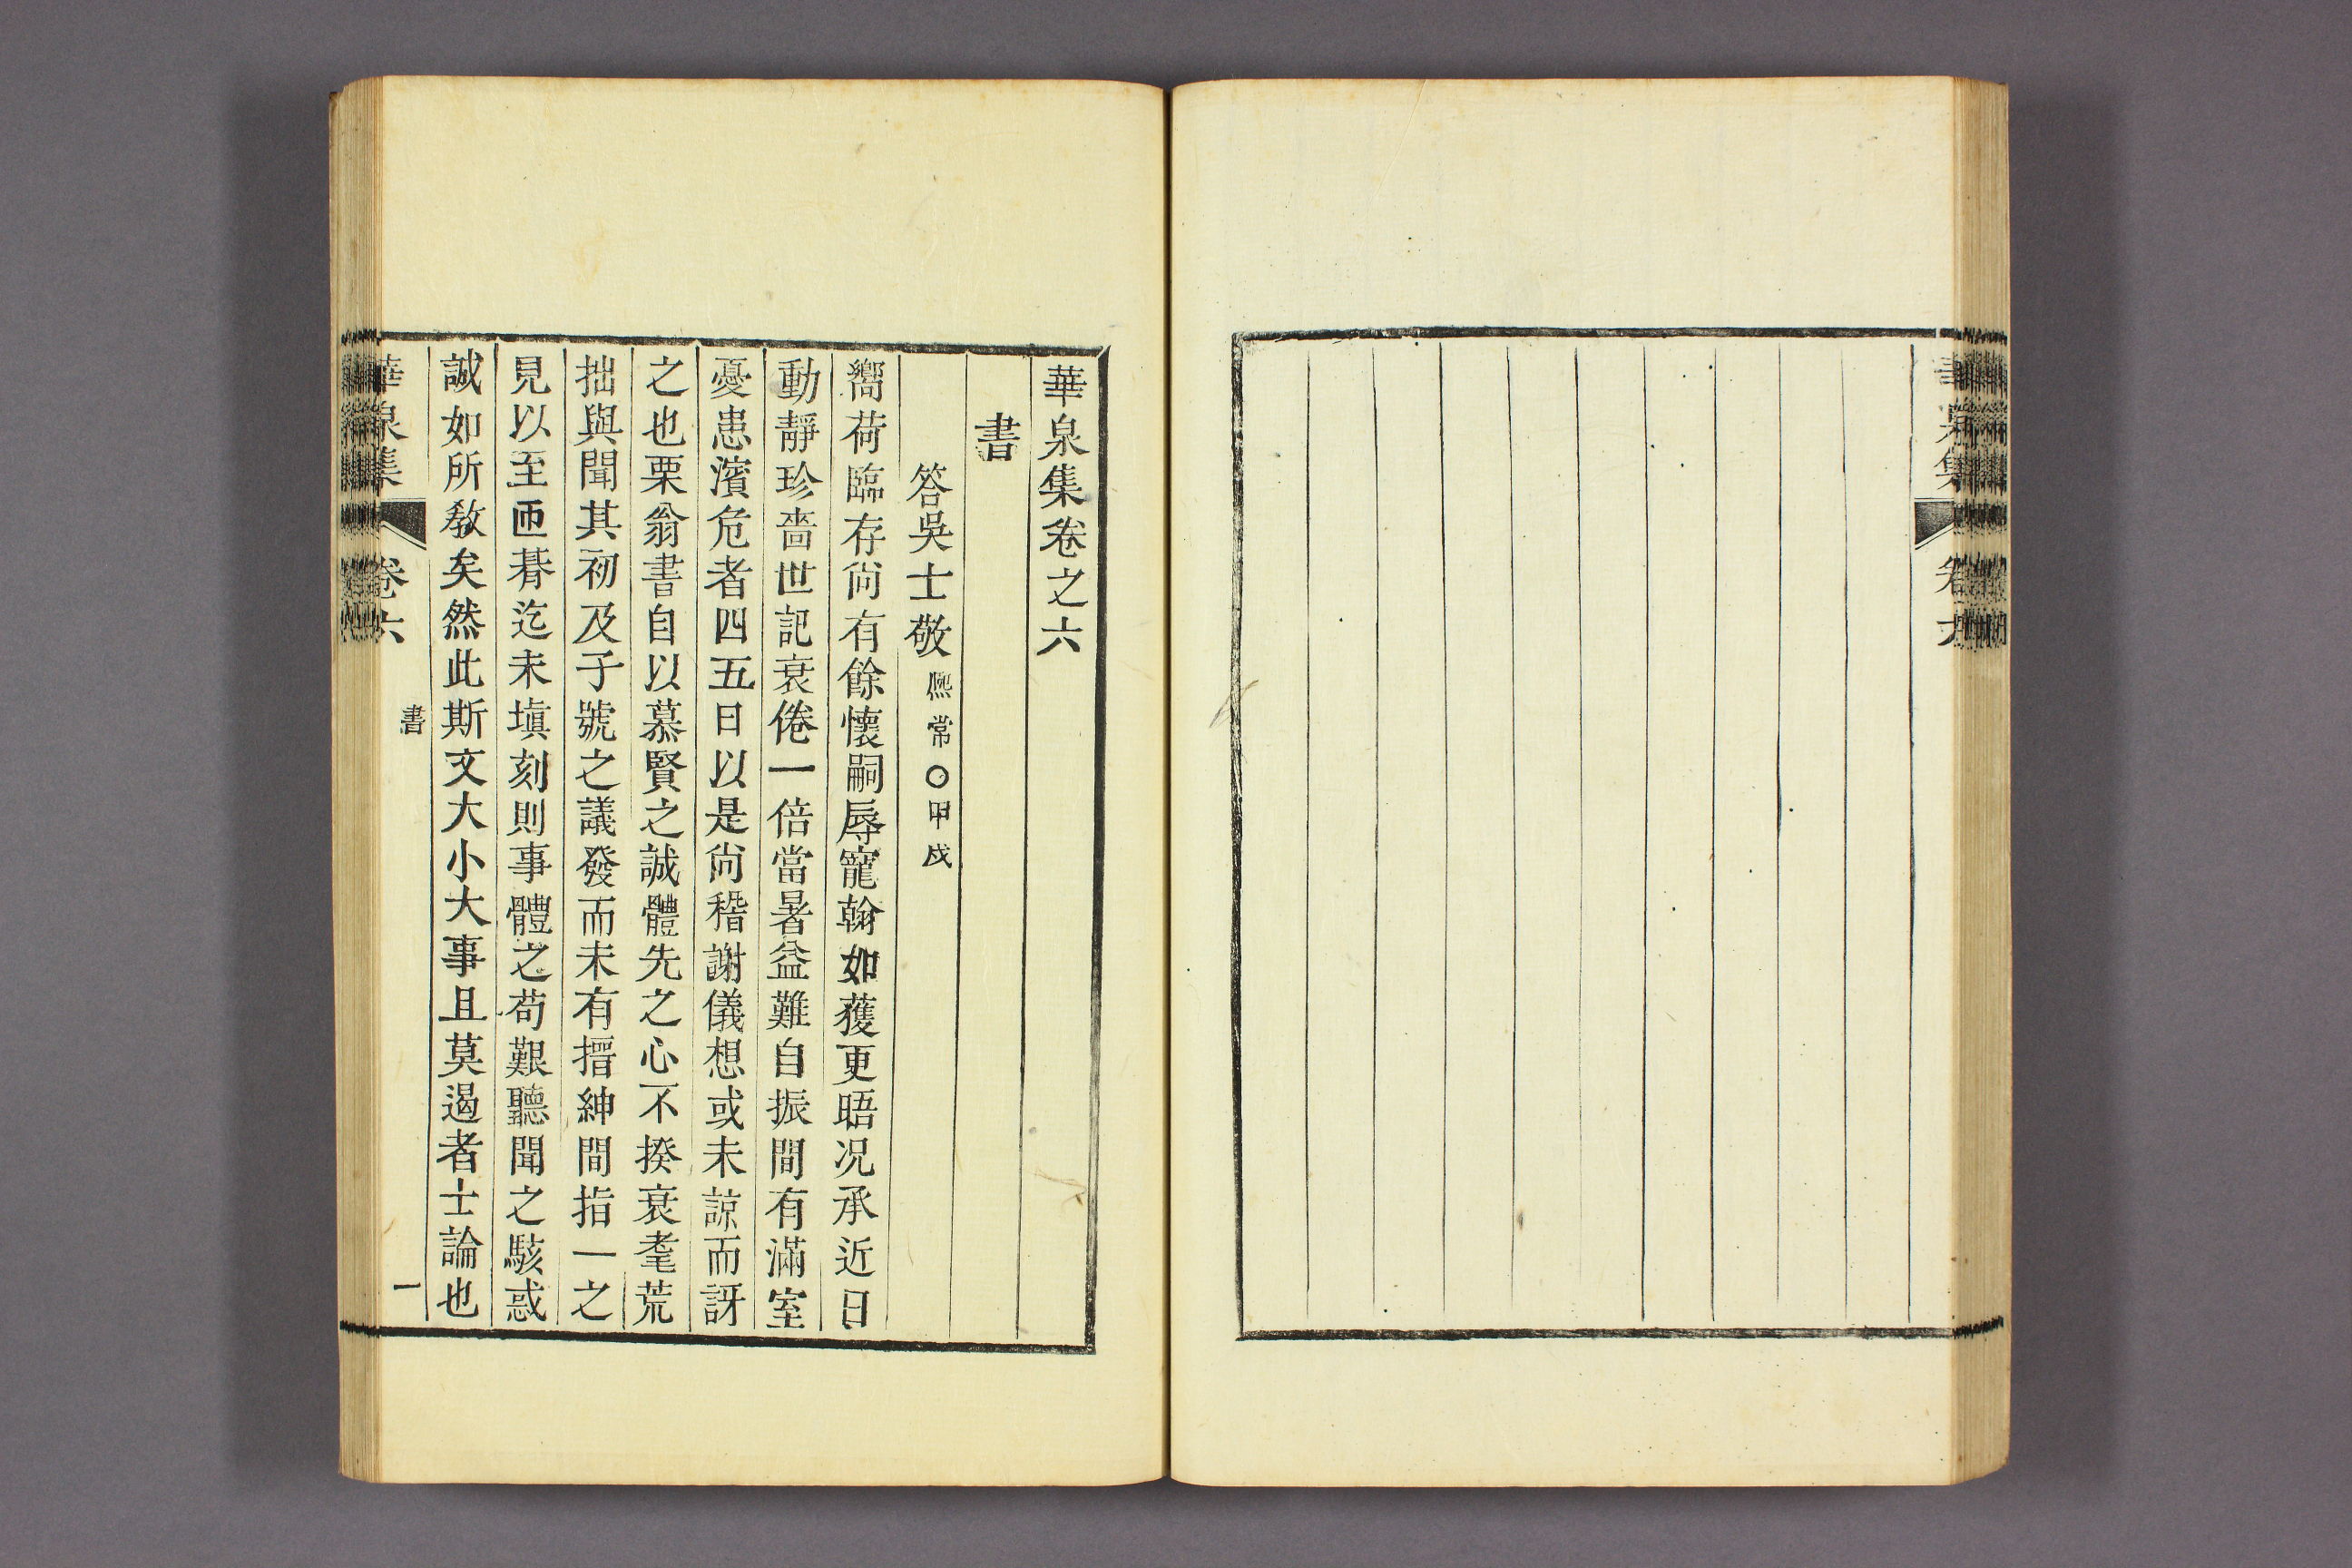 華泉集卷之六
書
答吳士敬熈常○甲戌
嚮荷臨存尙有餘懷嗣辱寵翰如獲更晤况承近日
動靜珍嗇世記衰倦一倍當暑益難自振間有滿室
憂患濱危者四五日以是尙稽謝儀想或未諒而訝
之也栗翁書自以慕賢之誠體先之心不揆衰耄荒
拙與聞其初及子號之議發而未有搢紳間指一之
見以至匝朞迄未塡刻則事體之苟艱聽聞之駭惑
誠如所敎矣然此斯文大小大事且莫遏者士論也
華泉集 卷六 書 一